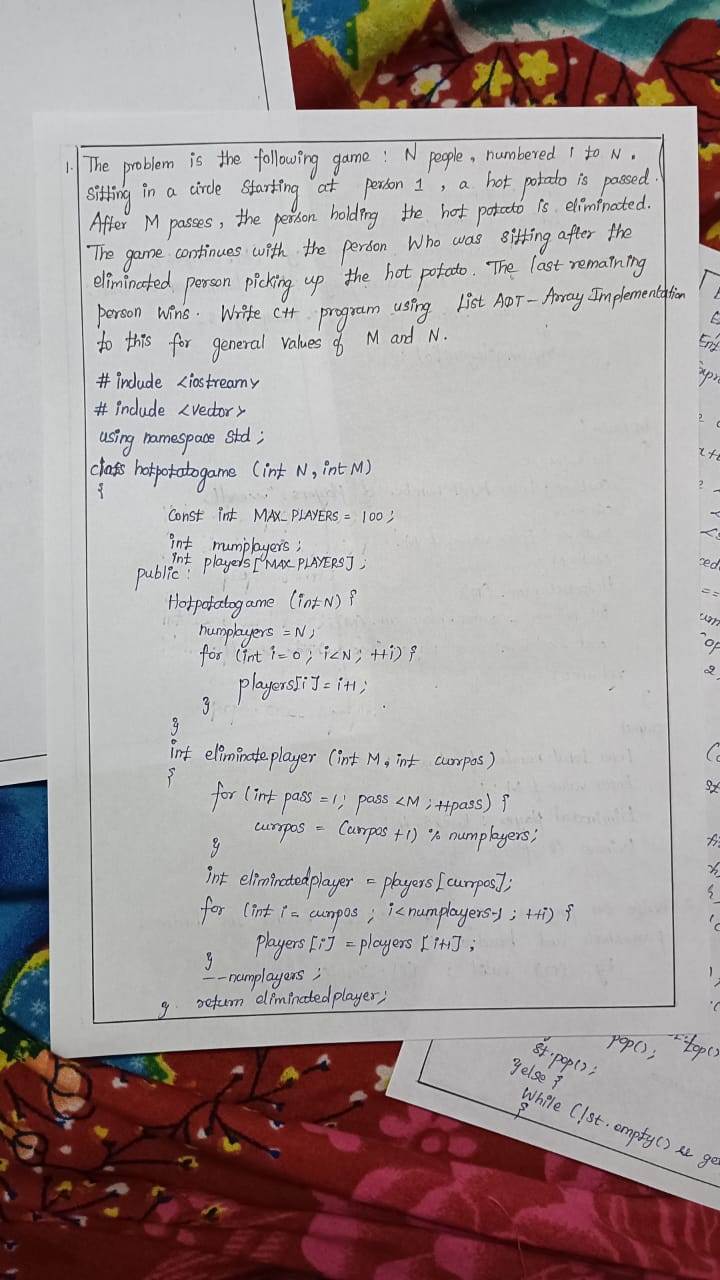 1. The problem is the following game : N people, numbered 1 to N.
Sitting in a circle starting at person 1, a hot potato is passed.
After M passes, the person holding the hot potato is eliminated.
The game continues with the person who was sitting after the
eliminated person picking up the hot potato. The last remaining
person wins. Write C++ program using List ADT - Array Implementation
to this for general values of M and N.
# include <iostream>
# include <vector>
using namespace std ;
class hotpotatogame (int N, int M)
{
Const int MAX_PLAYERS = 100 ;
int numplayers ;
int players [MAX_PLAYERS] ;
public :
Hotpotatogame (int N) {
numplayers = N ;
for (int i = 0 ; i<N ; ++i) {
players[i] = i+1 ;
}
}
int eliminateplayer (int M, int currpos)
{
for (int pass = 1 ; pass <M ; ++pass) {
currpos = (currpos +1) % numplayers ;
}
int eliminatedplayer = players [currpos] ;
for (int i = currpos ; i<numplayers-1 ; ++i) {
players [i] = players [i+1] ;
}
--numplayers ;
} return eliminatedplayer ;
pop() ;
st.pop() ;
}else {
while (!st.empty()
{